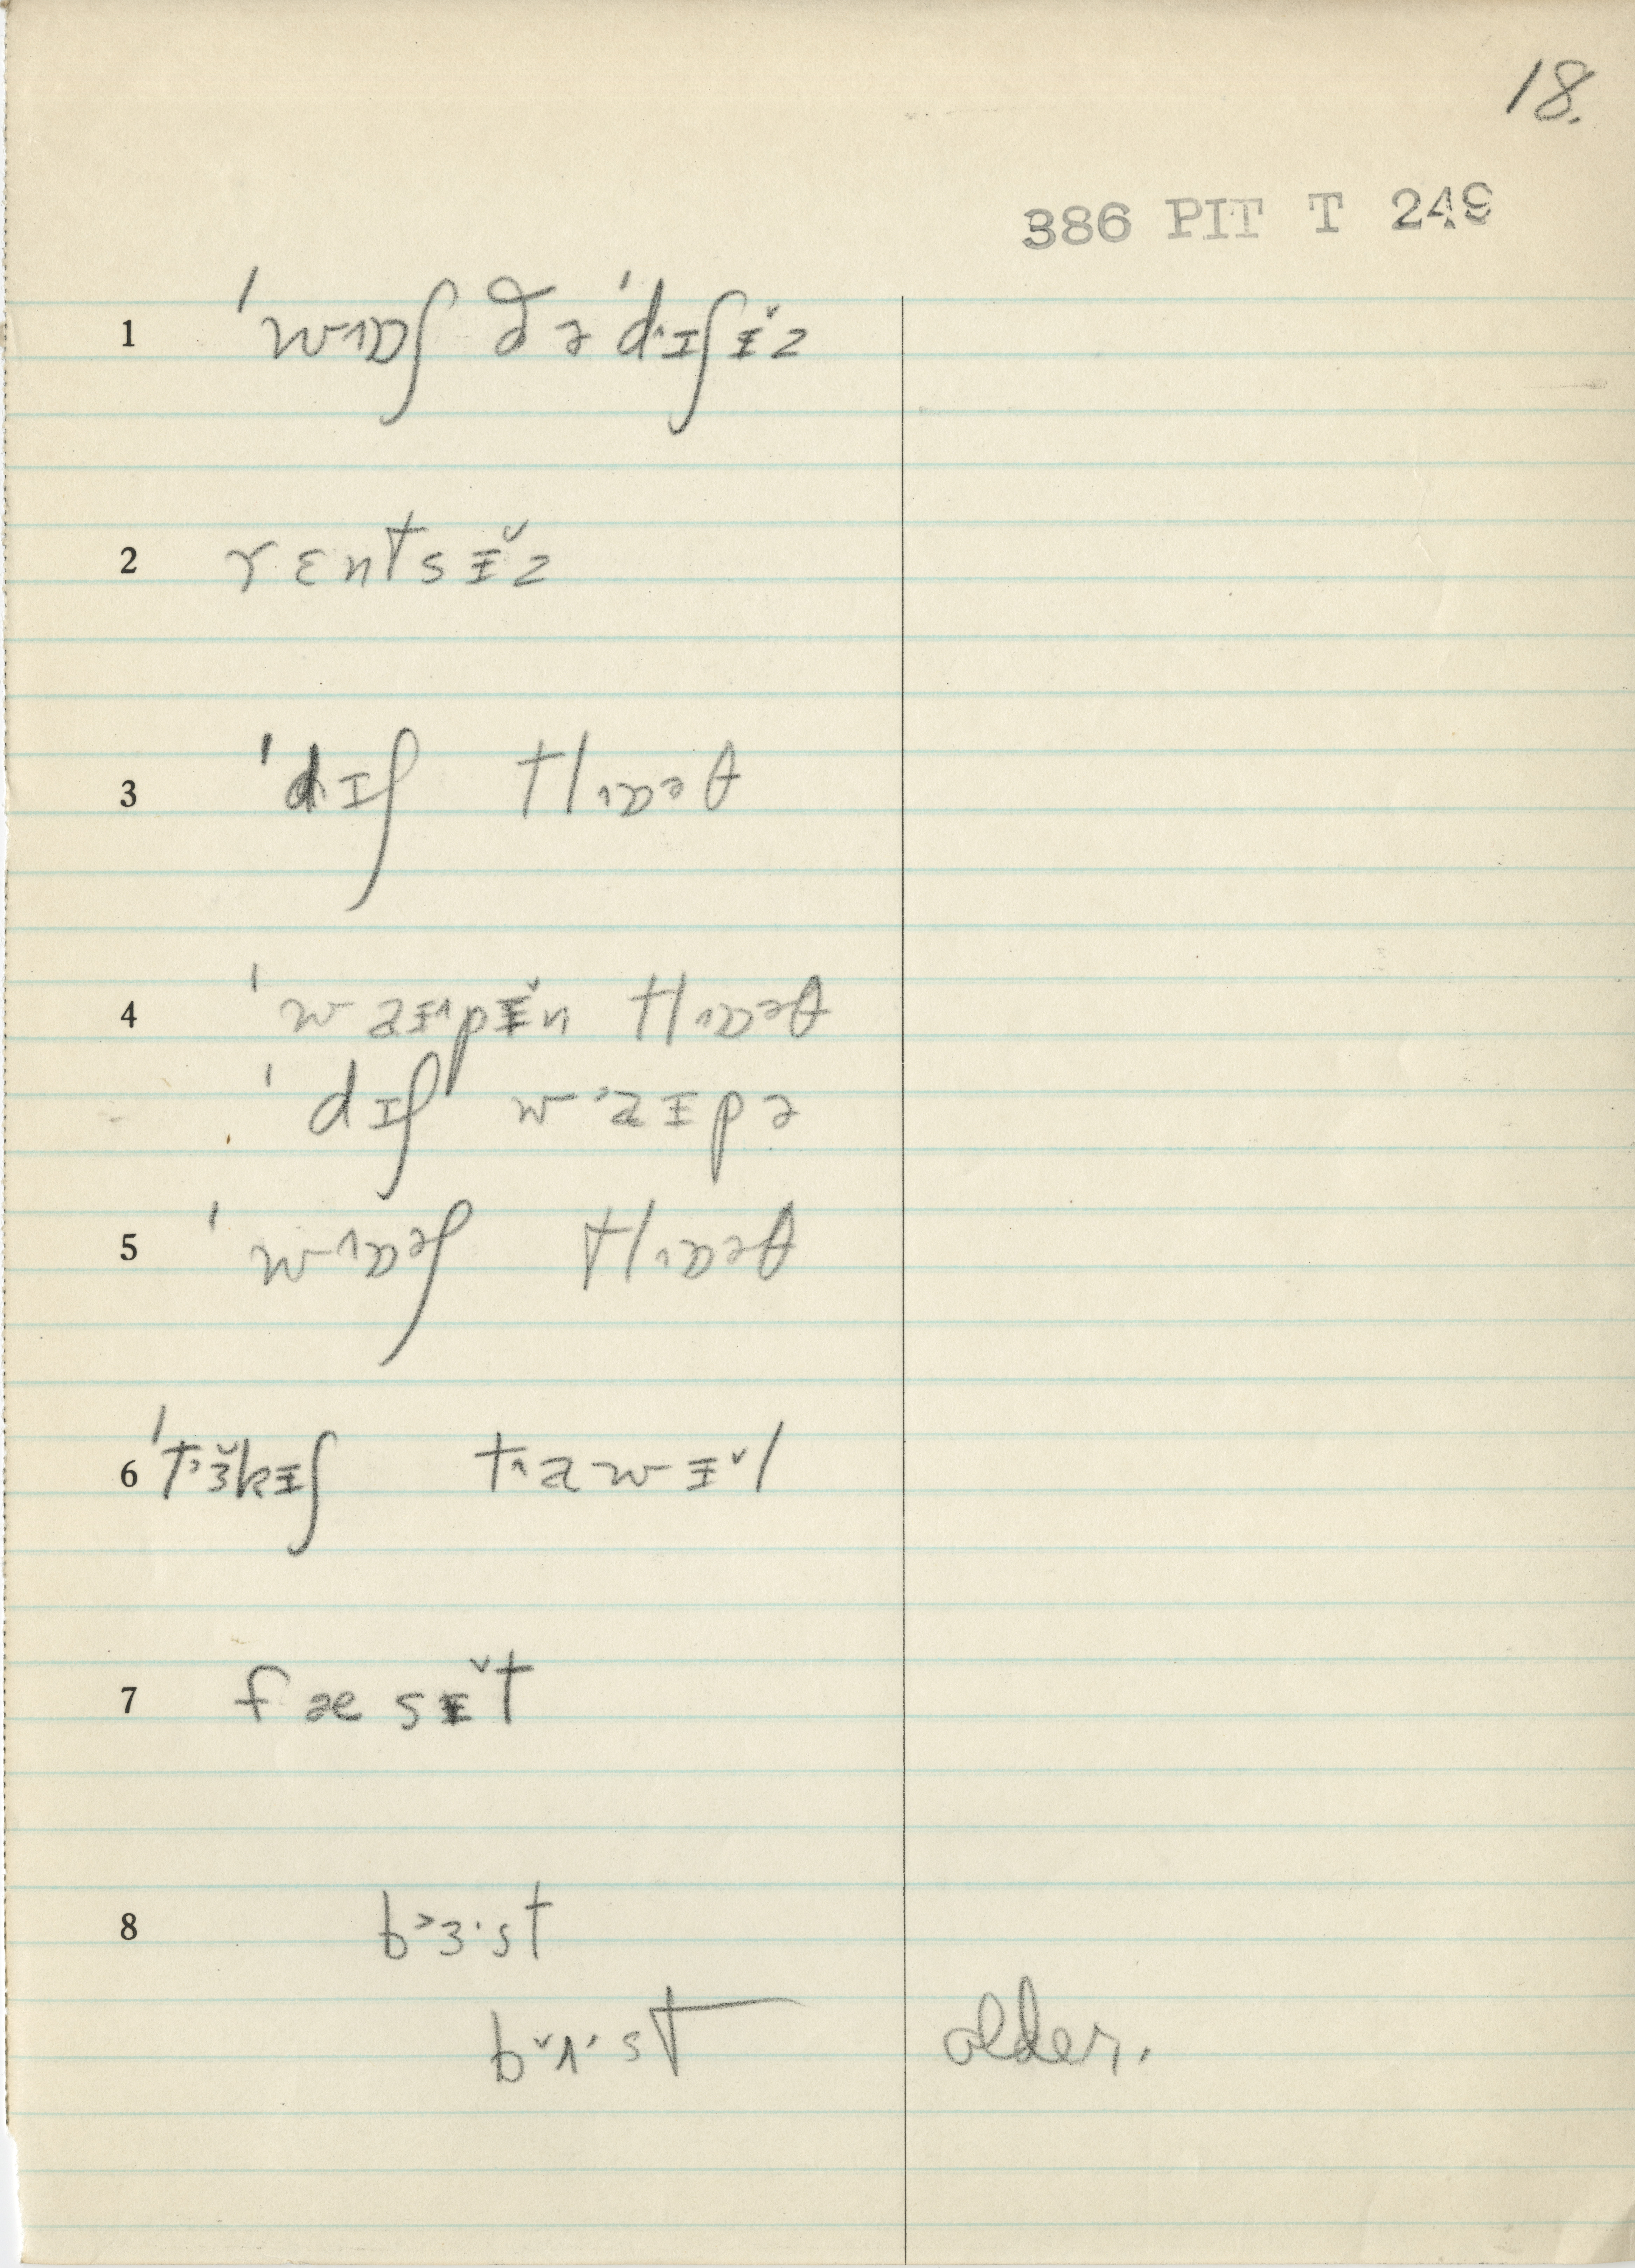 18.
386 PIT T 249
1 ˈwɒ˔ʃ ðə ˈdɪʃɨ̆z
2 rɛntsɨ̆z
3 ˈdɪʃ klɒəθ
4 ˈwaɨpɨ̆n klɒəθ
ˈdɪʃ waɨpə
5 ˈwɒəʃ klɒəθ
6 ˈtɜ̆kɨʃ tawɨ̆l
7 fæsɨ̆t
8 bɜ·st
bʌ·st older.